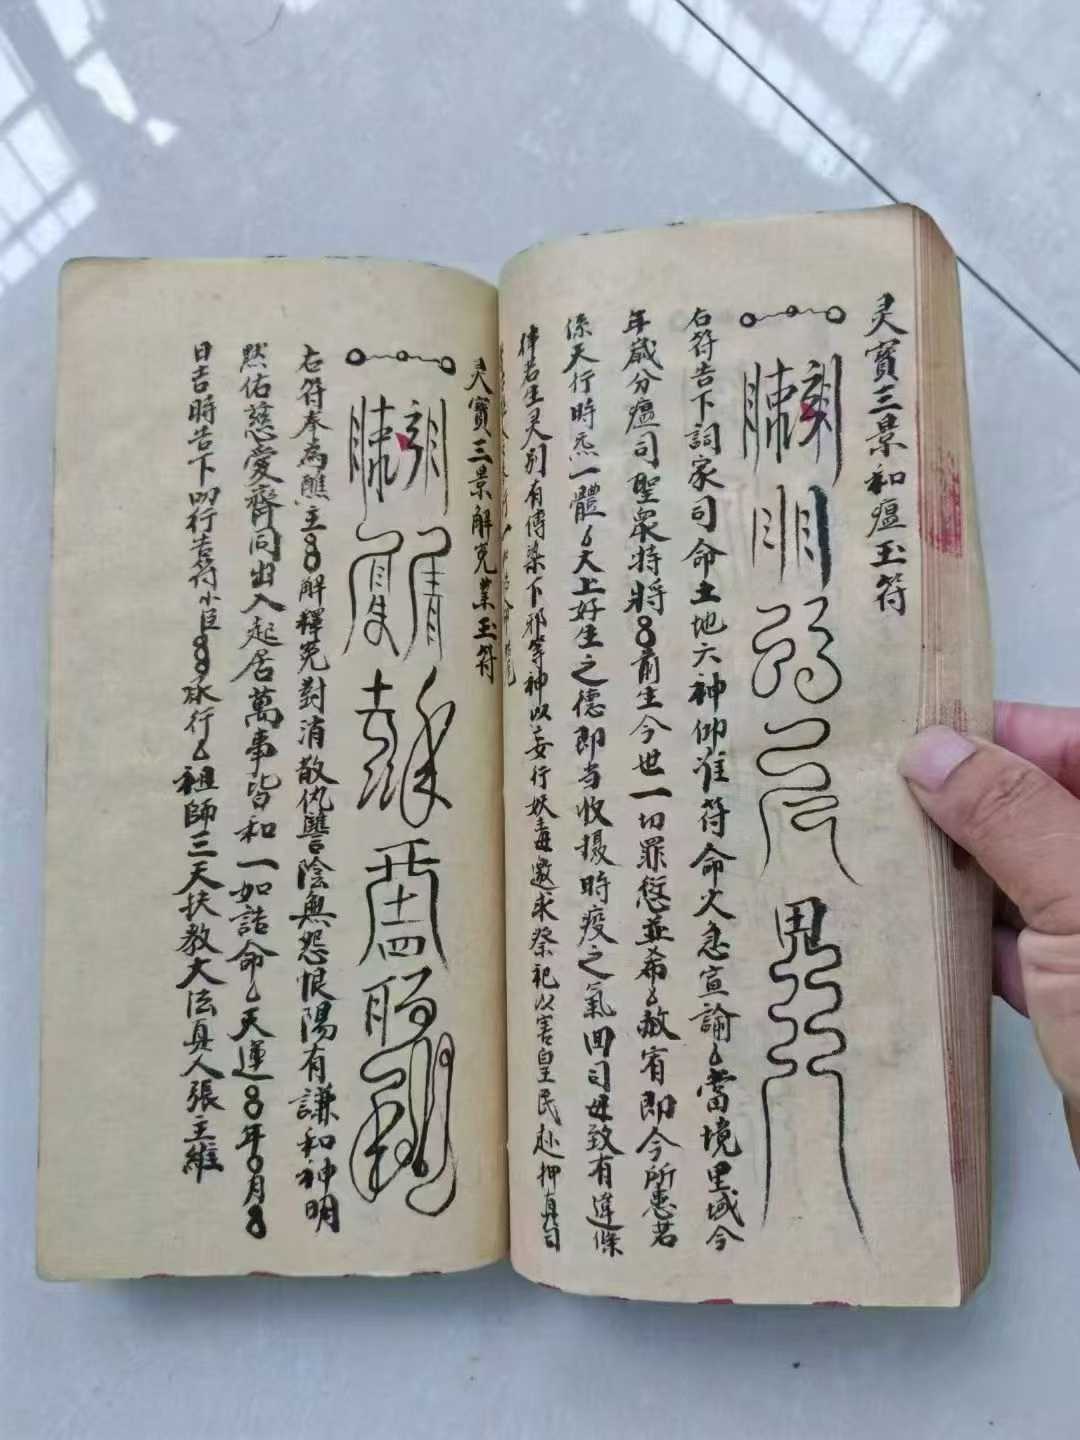 灵寳三景和瘟玉符
右符告下詞家司命土地六神仰准符命火急宣諭〻當境里域今
年歲分瘟司聖眾特將8前生今世一切罪愆並希〻赦宥即今所患若
係天行時炁一體〻大上好生之德即当收摄時疫之氣回司毋致有違條
律若生灵別有傳染下邪等神以妄行妖毒邀求祭祀以害皇民赴押真司
灵寳三景解冤業玉符
右符奉為醮主8解釋冤對消散仇讐陰無怨恨陽有謙和神明
默佑慈愛齊同出入起居萬事皆和一如誥命〻天運8年8月8
日吉時告下 叩行吉符小臣88承行〻祖師三天扶教大法真人張主維